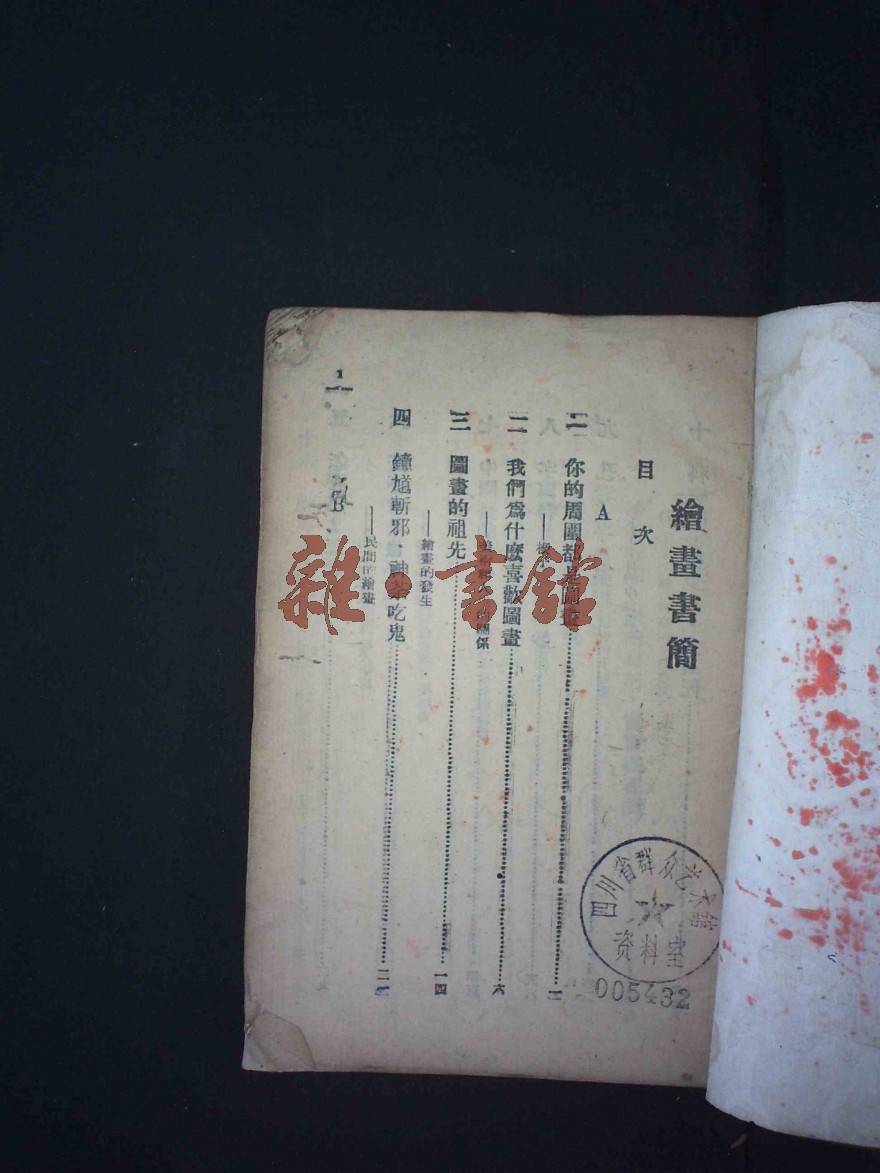 繪畫書簡
目次
A
一 你的周圍都是圖畫
二 我們爲什麼喜歡圖畫……六
三 圖畫的祖先……一四
——繪畫的發生
四 鐘馗斬邪、神荼吃鬼
——民間的繪畫
B
1
雜·書館
四川省群众艺术馆
资料室
005432